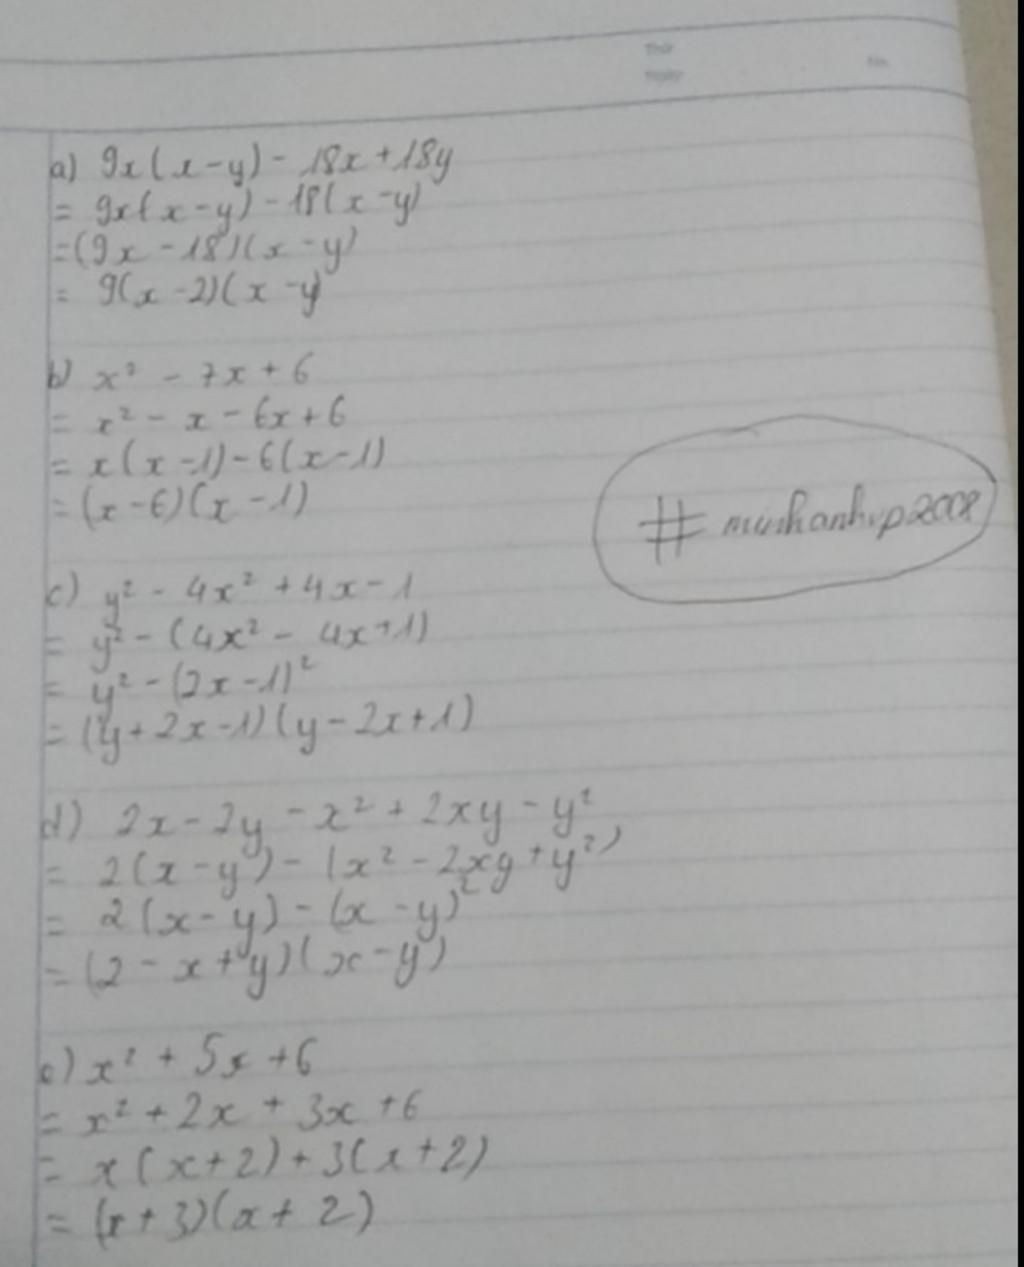 Thứ
Ngày
No.
a) 9x(x-y) - 18x + 18y
= 9x(x-y) - 18(x-y)
=(9x - 18)(x - y)
= 9(x-2)(x-y)
b) x² - 7x + 6
= x² - x - 6x + 6
= x(x-1) - 6(x-1)
= (x-6)(x-1)
#minhanhvp2008
c) y² - 4x² + 4x - 1
= y² - (4x² - 4x+1)
= y² - (2x-1)²
= (y+2x-1)(y-2x+1)
d) 2x - 2y - x² + 2xy - y²
= 2(x-y) - (x² - 2xy + y²)
= 2(x-y) - (x-y)²
= (2 - x + y)(x-y)
e) x² + 5x + 6
= x² + 2x + 3x + 6
= x(x+2) + 3(x+2)
= (x+3)(x+2)